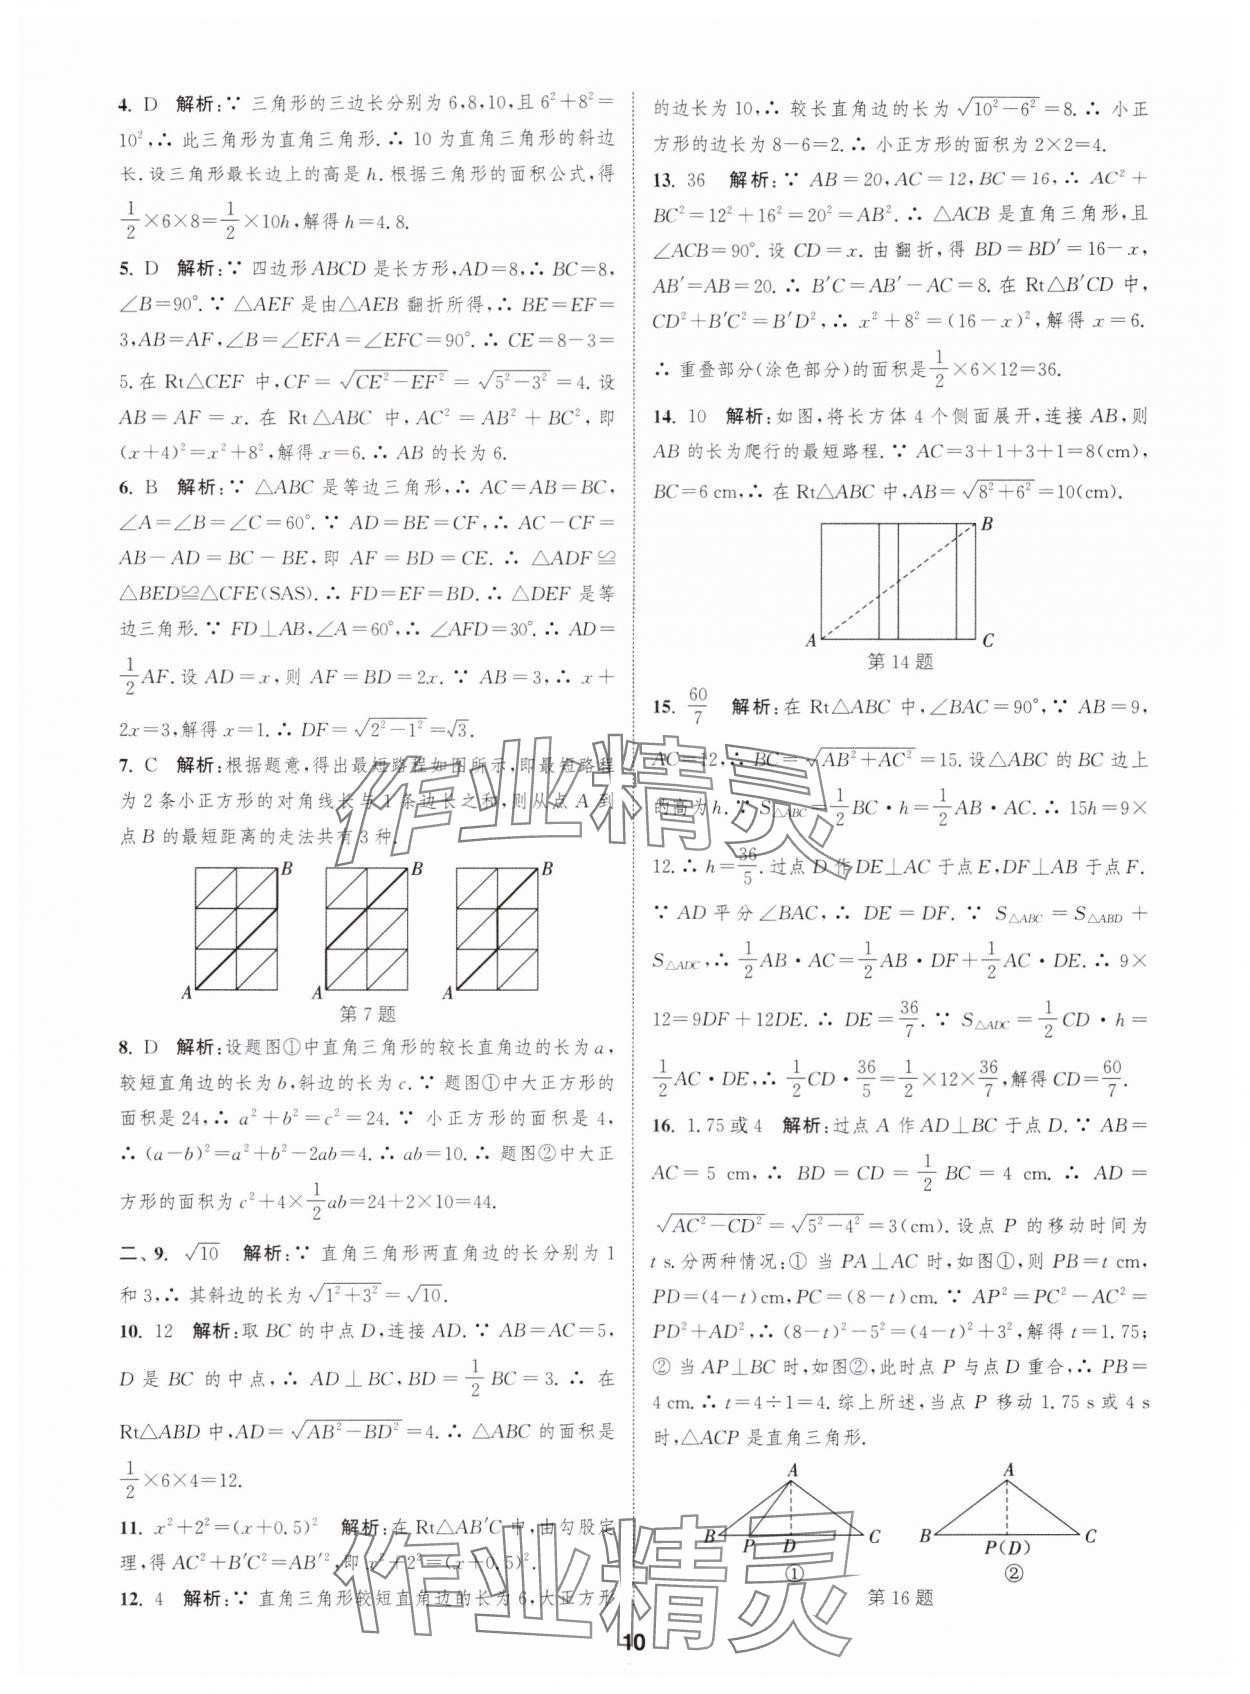 4. D 解析:∵ 三角形的三边长分别为 6,8,10,且 6²+8²=
10²,∴ 此三角形为直角三角形.∴ 10 为直角三角形的斜边
长.设三角形最长边上的高是 h.根据三角形的面积公式,得
1/2×6×8=1/2×10h,解得 h=4.8.
5. D 解析:∵ 四边形 ABCD 是长方形,AD=8,∴ BC=8,
∠B=90°.∵ △AEF 是由△AEB 翻折所得,∴ BE=EF=
3,AB=AF,∠B=∠EFA=∠EFC=90°.∴ CE=8-3=
5.在 Rt△CEF 中,CF=√(CE²-EF²)=√(5²-3²)=4.设
AB=AF=x.在 Rt△ABC 中,AC²=AB²+BC²,即
(x+4)²=x²+8²,解得 x=6.∴ AB 的长为 6.
6. B 解析:∵ △ABC 是等边三角形,∴ AC=AB=BC,
∠A=∠B=∠C=60°.∵ AD=BE=CF,∴ AC-CF=
AB-AD=BC-BE,即 AF=BD=CE.∴ △ADF≌
△BED≌△CFE(SAS).∴ FD=EF=BD.∴ △DEF 是等
边三角形.∵ FD⊥AB,∠A=60°,∴ ∠AFD=30°.∴ AD=
1/2AF.设 AD=x,则 AF=BD=2x.∵ AB=3,∴ x+
2x=3,解得 x=1.∴ DF=√(2²-1²)=√3.
7. C 解析:根据题意,得出最短路程如图所示,即最短路程
为 2 条小正方形的对角线长与 1 条边长之和,则从点 A 到
点 B 的最短距离的走法共有 3 种.
B B B
A A A
第 7 题
8. D 解析:设题图①中直角三角形的较长直角边的长为 a,
较短直角边的长为 b,斜边的长为 c.∵ 题图①中大正方形的
面积是 24,∴ a²+b²=c²=24.∵ 小正方形的面积是 4,
∴ (a-b)²=a²+b²-2ab=4.∴ ab=10.∴ 题图②中大正
方形的面积为 c²+4×1/2ab=24+2×10=44.
二、9. √10 解析:∵ 直角三角形两直角边的长分别为 1
和 3,∴ 其斜边的长为√(1²+3²)=√10.
10. 12 解析:取 BC 的中点 D,连接 AD.∵ AB=AC=5,
D 是 BC 的中点,∴ AD⊥BC,BD=1/2BC=3.∴ 在
Rt△ABD 中,AD=√(AB²-BD²)=4.∴ △ABC 的面积是
1/2×6×4=12.
11. x²+2²=(x+0.5)² 解析:在 Rt△AB′C 中,由勾股定
理,得 AC²+B′C²=AB′²,即 x²+2²=(x+0.5)².
12. 4 解析:∵ 直角三角形较短直角边的长为 6,大正方形
的边长为 10,∴ 较长直角边的长为√(10²-6²)=8.∴ 小正
方形的边长为 8-6=2.∴ 小正方形的面积为 2×2=4.
13. 36 解析:∵ AB=20,AC=12,BC=16,∴ AC²+
BC²=12²+16²=20²=AB².∴ △ACB 是直角三角形,且
∠ACB=90°.设 CD=x.由翻折,得 BD=BD′=16-x,
AB′=AB=20.∴ B′C=AB′-AC=8.在 Rt△B′CD 中,
CD²+B′C²=B′D²,∴ x²+8²=(16-x)²,解得 x=6.
∴ 重叠部分(涂色部分)的面积是1/2×6×12=36.
14. 10 解析:如图,将长方体 4 个侧面展开,连接 AB,则
AB 的长为爬行的最短路程.∵ AC=3+1+3+1=8(cm),
BC=6 cm,∴ 在 Rt△ABC 中,AB=√(8²+6²)=10(cm).
B
A C
第 14 题
15. 60/7 解析:在 Rt△ABC 中,∠BAC=90°,∵ AB=9,
AC=12,∴ BC=√(AB²+AC²)=15.设△ABC 的 BC 边上
的高为 h.∵ S△ABC=1/2BC·h=1/2AB·AC.∴ 15h=9×
12.∴ h=36/5.过点 D 作 DE⊥AC 于点 E,DF⊥AB 于点 F.
∵ AD 平分∠BAC,∴ DE=DF.∵ S△ABC=S△ABD+
S△ADC,∴ 1/2AB·AC=1/2AB·DF+1/2AC·DE.∴ 9×
12=9DF+12DE.∴ DE=36/7.∵ S△ADC=1/2CD·h=
1/2AC·DE,∴ 1/2CD·36/5=1/2×12×36/7,解得 CD=60/7.
16. 1.75 或 4 解析:过点 A 作 AD⊥BC 于点 D.∵ AB=
AC=5 cm,∴ BD=CD=1/2BC=4 cm.∴ AD=
√(AC²-CD²)=√(5²-4²)=3(cm).设点 P 的移动时间为
t s.分两种情况:① 当 PA⊥AC 时,如图①,则 PB=t cm,
PD=(4-t)cm,PC=(8-t)cm.∵ AP²=PC²-AC²=
PD²+AD²,∴ (8-t)²-5²=(4-t)²+3²,解得 t=1.75;
② 当 AP⊥BC 时,如图②,此时点 P 与点 D 重合,∴ PB=
4 cm.∴ t=4÷1=4.综上所述,当点 P 移动 1.75 s 或 4 s
时,△ACP 是直角三角形.
A A
B P D C B P(D) C
① ②
第 16 题
10
作业精灵
作业精灵